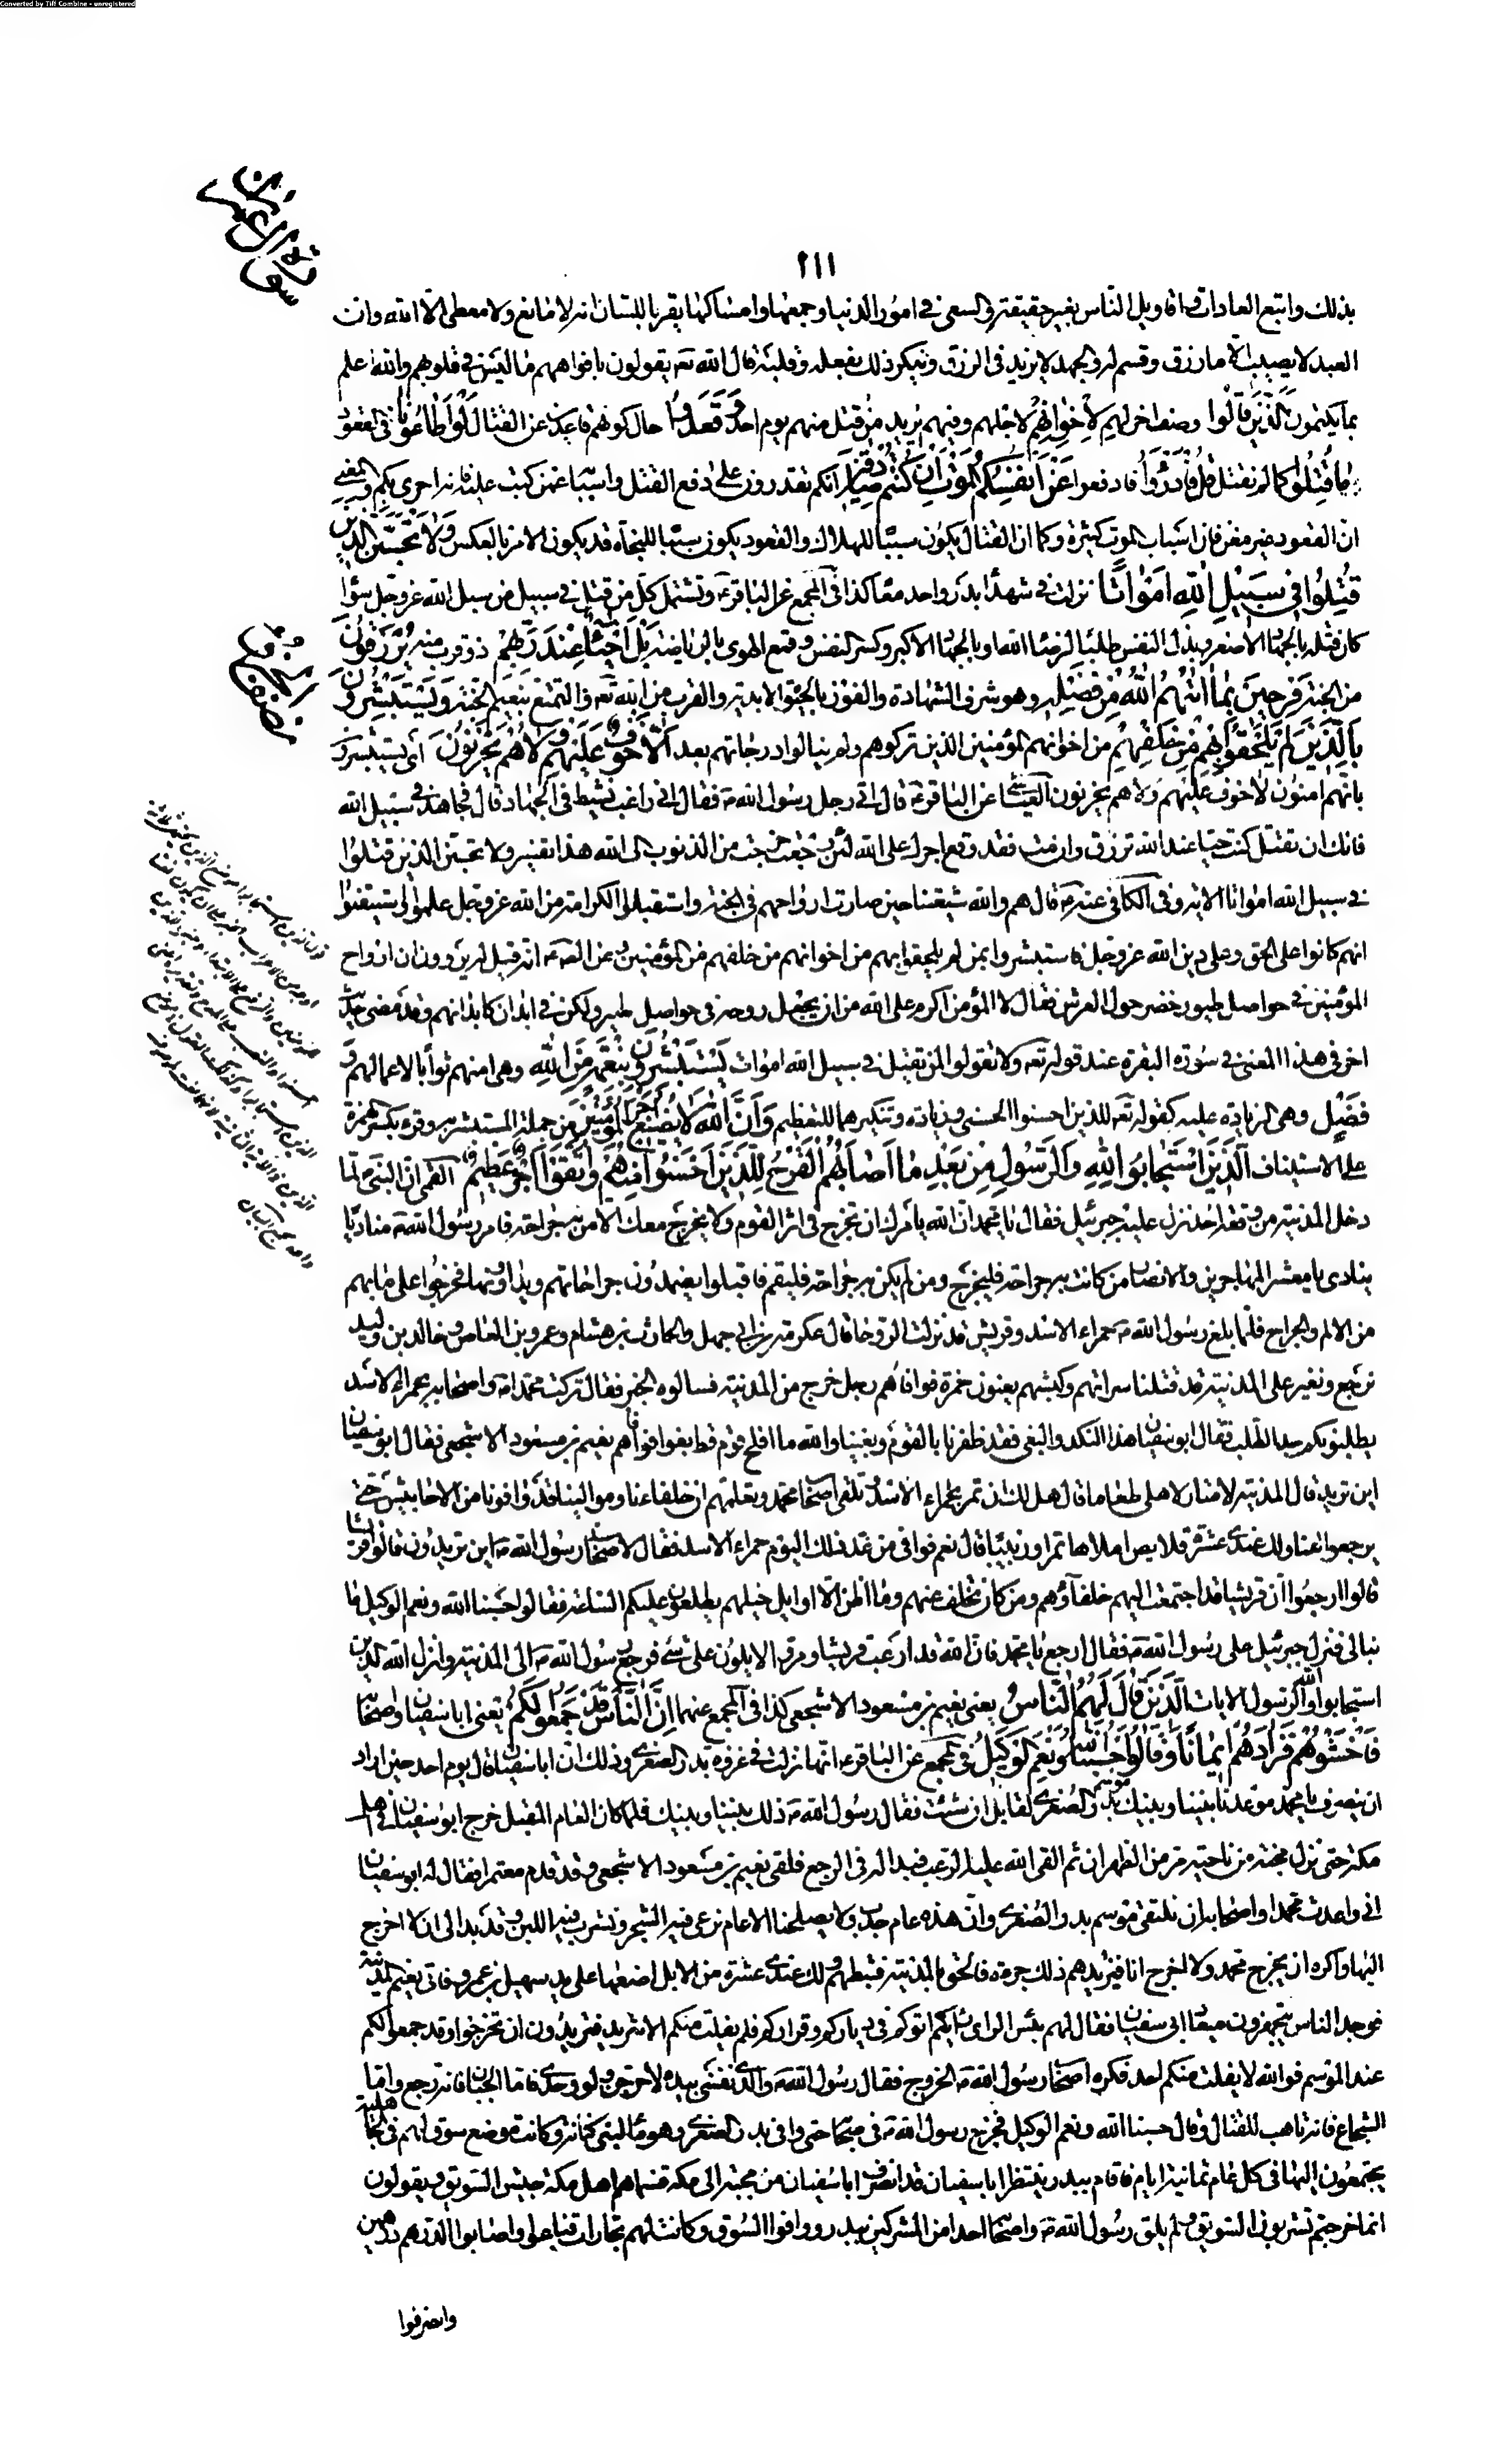 Converted by Tiff Combine - unregistered
سورة آل عمران
٢١١
بذلك واتبع العادات واقاويل الناس بغير حقيقة والسعى فى امور الدنيا وجمعها وامساكها يقر باللسان انه لا مانع ولا معطى الا الله وان
العبد لا يصيب الا ما رزق وقسم له والجهد لا يزيد فى الرزق وينكر ذلك بفعله وقلبه قال الله تعه يقولون بافواههم ما ليس فى قلوبهم والله اعلم
بما يكتمون الَّذِينَ قالُوا وصف اخر لهم لِإِخْوانِهِمْ لاجلهم وفيهم يريد من قتل منهم يوم احد وَقَعَدُوا حال كونهم قاعدين عن القتال لَوْ أَطاعُونا فى القعود
ما قُتِلُوا كما لم نقتل قُلْ فَادْرَؤُا فادفعوا عَنْ أَنْفُسِكُمُ الْمَوْتَ إِنْ كُنْتُمْ صادِقِينَ انكم تقدرون على دفع القتل واسبابه عمن كتب عليه فانه احرى بكم والمعنى
ان القعود غير مغن فان اسباب الموت كثيرة وكما ان القتال يكون سببا للهلاك والقعود يكون سببا للنجاة قد يكون الامر بالعكس وَلا تَحْسَبَنَّ الَّذِينَ
قُتِلُوا فِي سَبِيلِ اللَّهِ أَمْواتاً نزلت فى شهداء بدر واحد معا كذا فى المجمع عن الباقر ع وتشتمل كل من قتل فى سبيل من سبل الله عز وجل سواء
كان قتله بالجهاد الاصغر وبذل النفس طلبا لرضا الله او بالجهاد الاكبر وكسر النفس وقمع الهوى بالرياضة بَلْ أَحْياءٌ عِنْدَ رَبِّهِمْ ذو قرب منه يُرْزَقُونَ
من الجنة فَرِحِينَ بِما آتاهُمُ اللَّهُ مِنْ فَضْلِهِ وهو شرف الشهادة والفوز بالحيوة الابدية والقرب من الله تعه والتمتع بنعيم الجنة وَيَسْتَبْشِرُونَ
بِالَّذِينَ لَمْ يَلْحَقُوا بِهِمْ مِنْ خَلْفِهِمْ من اخوانهم المؤمنين الذين تركوهم ولم ينالوا درجاتهم بعد أَلَّا خَوْفٌ عَلَيْهِمْ وَلا هُمْ يَحْزَنُونَ اى يستبشرون
بانهم امنون لا خوف عليهم ولا هم يحزنون العياشى عن الباقر ع قال اتى رجل رسول الله ص فقال انى راغب نشيط فى الجهاد قال فجاهد فى سبيل الله
فانك ان تقتل كنت حيا عند الله ترزق وان مت فقد وقع اجرك على الله وان رجعت خرجت من الذنوب الى الله هذا تفسير ولا تحسبن الذين قتلوا
فى سبيل الله امواتا الاية وفى الكافى عنه ع قال هم والله شيعتنا حين صارت ارواحهم فى الجنة واستقبلوا الكرامة من الله عز وجل علموا واستيقنوا
انهم كانوا على الحق وعلى دين الله عز وجل فاستبشروا بمن لم يلحقوا بهم من اخوانهم من خلفهم من المؤمنين وعن الصه ع انه قيل له يروون ان ارواح
المؤمنين فى حواصل طيور خضر حول العرش فقال لا المؤمن اكرم على الله من ان يجعل روحه فى حواصل طير ولكن فى ابدان كابدانهم وقد مضى حديث
اخر فى هذا المعنى فى سورة البقرة عند قوله تعه ولا تقولوا لمن يقتل فى سبيل الله اموات يَسْتَبْشِرُونَ بِنِعْمَةٍ مِنَ اللَّهِ وهى امنهم ثوابا لاعمالهم وَ
فَضْلٍ وهى الزيادة عليه كقوله تعه للذين احسنوا الحسنى وزيادة وتنكيرهما للتعظيم وَأَنَّ اللَّهَ لا يُضِيعُ أَجْرَ الْمُؤْمِنِينَ من جملة المستبشر به وقرء بكسر همزة
على الاستيناف الَّذِينَ اسْتَجابُوا لِلَّهِ وَالرَّسُولِ مِنْ بَعْدِ ما أَصابَهُمُ الْقَرْحُ لِلَّذِينَ أَحْسَنُوا مِنْهُمْ وَاتَّقَوْا أَجْرٌ عَظِيمٌ القمى ان النبى ص لما
دخل المدينة من وقعة احد نزل عليه جبرئيل فقال يا محمد ان الله يامرك ان تخرج فى اثر القوم ولا يخرج معك الا من به جراحة فامر رسول الله ص مناديا
ينادى يا معشر المهاجرين والانصار من كانت به جراحة فليخرج ومن لم يكن به جراحة فليقم فاقبلوا يضمدون جراحاتهم ويداوونها فخرجوا على ما بهم
من الالم والجراح فلما بلغ رسول الله ص حمراء الاسد وقريش قد نزلت الروحا قال عكرمة بن ابى جهل والحارث بن هشام وعمرو بن العاص وخالد بن وليد
نرجع ونغير على المدينة قد قتلنا سراتهم وكبشهم يعنون حمزة فوافاهم رجل خرج من المدينة فسالوه الخبر فقال تركت محمدا ص واصحابه بحمراء الاسد
يطلبونكم جد الطلب فقال ابو سفيان هذا النكد والبغى فقد ظفرنا بالقوم وبغينا والله ما افلح قوم قط بغوا فوافاهم نعيم بن مسعود الاشجعى فقال ابو سفيان
اين تريد قال المدينة لامتار لاهلى طعاما قال هل لك ان تمر بحمراء الاسد وتلقى اصحاب محمد وتعلمهم ان حلفاءنا وموالينا قد وافونا من الاحابيش حتى
يرجعوا عنا ولك عندى عشرة قلايص املاها تمرا وزبيبا قال نعم فوافى من غد ذلك اليوم حمراء الاسد فقال لاصحاب رسول الله ص اين تريدون قالوا قريشا
قالوا ارجعوا ان قريشا قد اجتمعت اليهم حلفاؤهم ومن كان تخلف عنهم وما اظن الا اوايل خيلهم يطلعون عليكم الساعة فقالوا حسبنا الله ونعم الوكيل ما
نبالى فنزل جبرئيل على رسول الله ص فقال ارجع يا محمد فان الله قد ارعب قريشا ومروا لا يلون على شىء فرجع رسول الله ص الى المدينة وانزل الله الذين
استجابوا لله والرسول الايات الَّذِينَ قالَ لَهُمُ النَّاسُ يعنى نعيم بن مسعود الاشجعى كذا فى المجمع عنهما إِنَّ النَّاسَ قَدْ جَمَعُوا لَكُمْ يعنى ابا سفيان واصحابه
فَاخْشَوْهُمْ فَزادَهُمْ إِيماناً وَقالُوا حَسْبُنَا اللَّهُ وَنِعْمَ الْوَكِيلُ وفى المجمع عن الباقر ع انها نزلت فى غزوة بدر الصغرى وذلك ان ابا سفيان قال يوم احد حين اراد
ان ينصرف يا محمد موعدنا بيننا وبينك موسم بدر الصغرى لقابل ان شئت فقال رسول الله ص ذلك بيننا وبينك فلما كان العام المقبل خرج ابو سفيان فى اهل
مكة حتى نزل مجنة من ناحية مر من الظهران ثم القى الله عليه الرعب فبدا له فى الرجع فلقى نعيم بن مسعود الاشجعى وقد قدم معتمرا فقال له ابو سفيان
انى واعدت محمدا واصحابه ان نلتقى موسم بدر الصغرى وان هذه عام جدب ولا يصلحنا الا عام نرعى فيه الشجر ونشرب فيه اللبن وقد بدا لى ان لا اخرج
اليها واكره ان يخرج محمد ولا اخرج انا فيزيدهم ذلك جرءة فالحق بالمدينة فثبطهم ولك عندى عشرة من الابل اضعها على يد سهيل بن عمرو فاتى نعيم المدينة
فوجد الناس يتجهزون ميعاد ابى سفيان فقال لهم بئس الراى رايكم اتوكم فى دياركم وقراركم فلم يفلت منكم الا شريد فتريدون ان تخرجوا وقد جمعوا لكم
عند الموسم فوالله لا يفلت منكم احد فكره اصحاب رسول الله ص الخروج فقال رسول الله ص والذى نفسى بيده لاخرجن ولو وحدى فاما الجبان فانه رجع واما
الشجاع فانه تاهب للقتال وقال حسبنا الله ونعم الوكيل فخرج رسول الله ص فى اصحابه حتى وافى بدر الصغرى وهو ماء لبنى كنانة وكانت موضع سوق لهم فى الجاهلية
يجتمعون اليها فى كل عام ثمانية ايام فاقام ببدر ينتظر ابا سفيان وقد انصرف ابا سفيان من مجنة الى مكة فسماهم اهل مكة جيش السويق ويقولون
انما خرجتم تشربون السويق ولم يلق رسول الله ص واصحابه احدا من المشركين ببدر ووافوا السوق وكانت لهم تجارات فباعوا واصابوا الدرهم درهمين
وانصرفوا